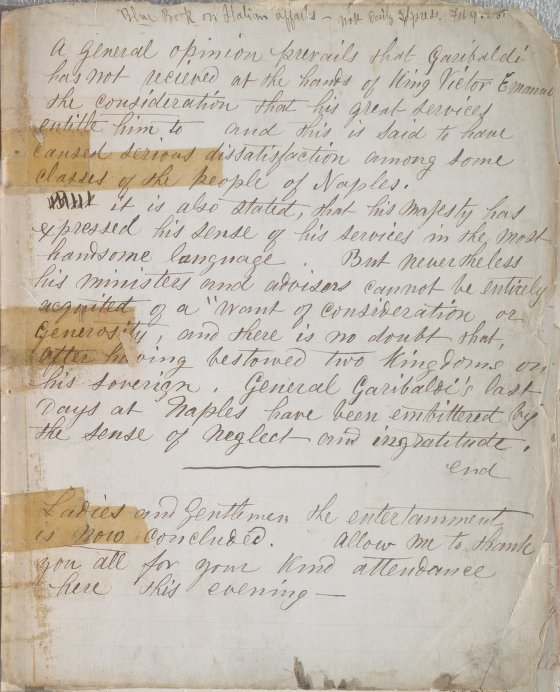 Blue Book on Italian affairs – Daily Express. Feb 9
A general opinion prevails that Garibaldi
has not recieved at the hands of King Victor Emanuel
the consideration that his great services
entitle him to and this is said to have
caused serious dissatisfaction among some
classes of the people of Naples.
it is also stated, that his Majesty has
expressed his sense of his services in the most
handsome language. But nevertheless
his ministers and advisers cannot be entirely
acquited of a "want of consideration or
Generosity, and there is no doubt that,
after having bestowed two Kingdoms on
his soverign. General Garibaldi's last
Days at Naples have been embittered by
the sense of neglect and ingratitude.
end
Ladies and Gentlemen the entertainment
is now concluded. Allow me to thank
you all for your kind attendance
here this evening —